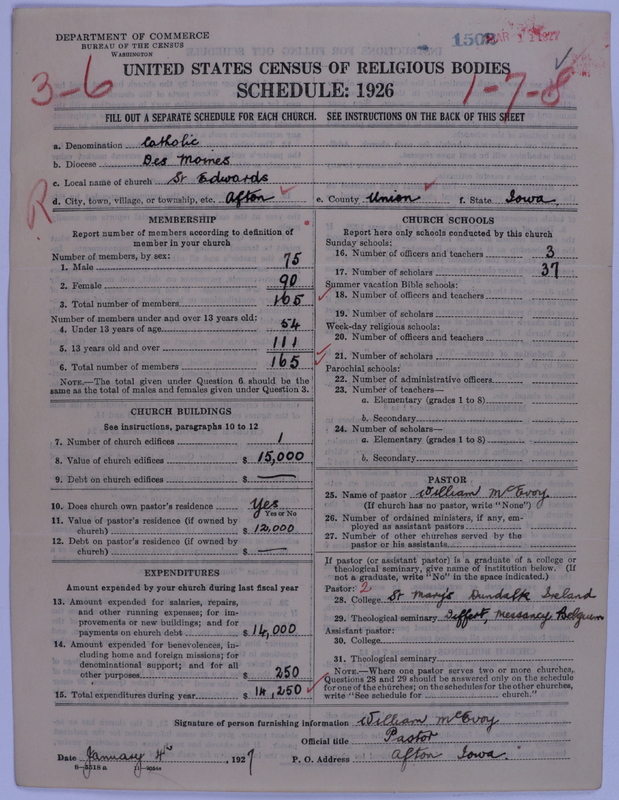 DEPARTMENT OF COMMERCE
BUREAU OF THE CENSUS
WASHINGTON
1508
MAR 11 1927
UNITED STATES CENSUS OF RELIGIOUS BODIES
SCHEDULE: 1926
3-6
1-7-8
FILL OUT A SEPARATE SCHEDULE FOR EACH CHURCH. SEE INSTRUCTIONS ON THE BACK OF THIS SHEET
a. Denomination Catholic
b. Diocese Des Moines
c. Local name of church St Edwards
R
d. City, town, village, or township, etc. Afton e. County Union f. State Iowa.
MEMBERSHIP
Report number of members according to definition of
member in your church
Number of members, by sex:
1. Male 75
2. Female 90
3. Total number of members 165
Number of members under and over 13 years old:
4. Under 13 years of age 54
5. 13 years old and over 111
6. Total number of members 165
NOTE.—The total given under Question 6 should be the
same as the total of males and females given under Question 3.
CHURCH BUILDINGS
See instructions, paragraphs 10 to 12
7. Number of church edifices 1
8. Value of church edifices $ 15,000
9. Debt on church edifices $ —
10. Does church own pastor's residence Yes
Yes or No
11. Value of pastor's residence (if owned by
church) $ 12,000
12. Debt on pastor's residence (if owned by
church) $ —
EXPENDITURES
Amount expended by your church during last fiscal year
13. Amount expended for salaries, repairs,
and other running expenses; for im-
provements or new buildings; and for
payments on church debt $ 14,000
14. Amount expended for benevolences, in-
cluding home and foreign missions; for
denominational support; and for all
other purposes $ 250
15. Total expenditures during year $ 14,250
CHURCH SCHOOLS
Report here only schools conducted by this church
Sunday schools:
16. Number of officers and teachers 3
17. Number of scholars 37
Summer vacation Bible schools:
18. Number of officers and teachers
19. Number of scholars
Week-day religious schools:
20. Number of officers and teachers
21. Number of scholars
Parochial schools:
22. Number of administrative officers
23. Number of teachers—
a. Elementary (grades 1 to 8)
b. Secondary
24. Number of scholars—
a. Elementary (grades 1 to 8)
b. Secondary
PASTOR
25. Name of pastor William McEvoy
(If church has no pastor, write "None")
26. Number of ordained ministers, if any, em-
ployed as assistant pastors
27. Number of other churches served by the
pastor or his assistants
If pastor (or assistant pastor) is a graduate of a college or
theological seminary, give name of institution below. (If
not a graduate, write "No" in the space indicated.)
Pastor: 2
28. College St Mary's Dundalk Ireland
29. Theological seminary Messancy Belgium
Assistant pastor:
30. College
31. Theological seminary
NOTE.—Where one pastor serves two or more churches,
Questions 28 and 29 should be answered only on the schedule
for one of the churches; on the schedules for the other churches,
write "See schedule for church."
Signature of person furnishing information William McEvoy
Official title Pastor
Date January 4th, 1927 P. O. Address Afton Iowa.
8—3518a